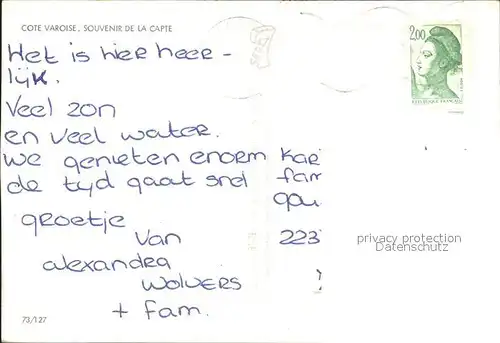 COTE VAROISE, SOUVENIR DE LA CAPTE
Het is hier heer -
lijk.
Veel zon
en veel water.
we genieten enorm
de tijd gaat snel
groetje
van
alexandra
wolvers
+ fam.
73/127
2,00
REPUBLIQUE FRANÇAISE
Kar
fam
gou
223
privacy protection
Datenschutz